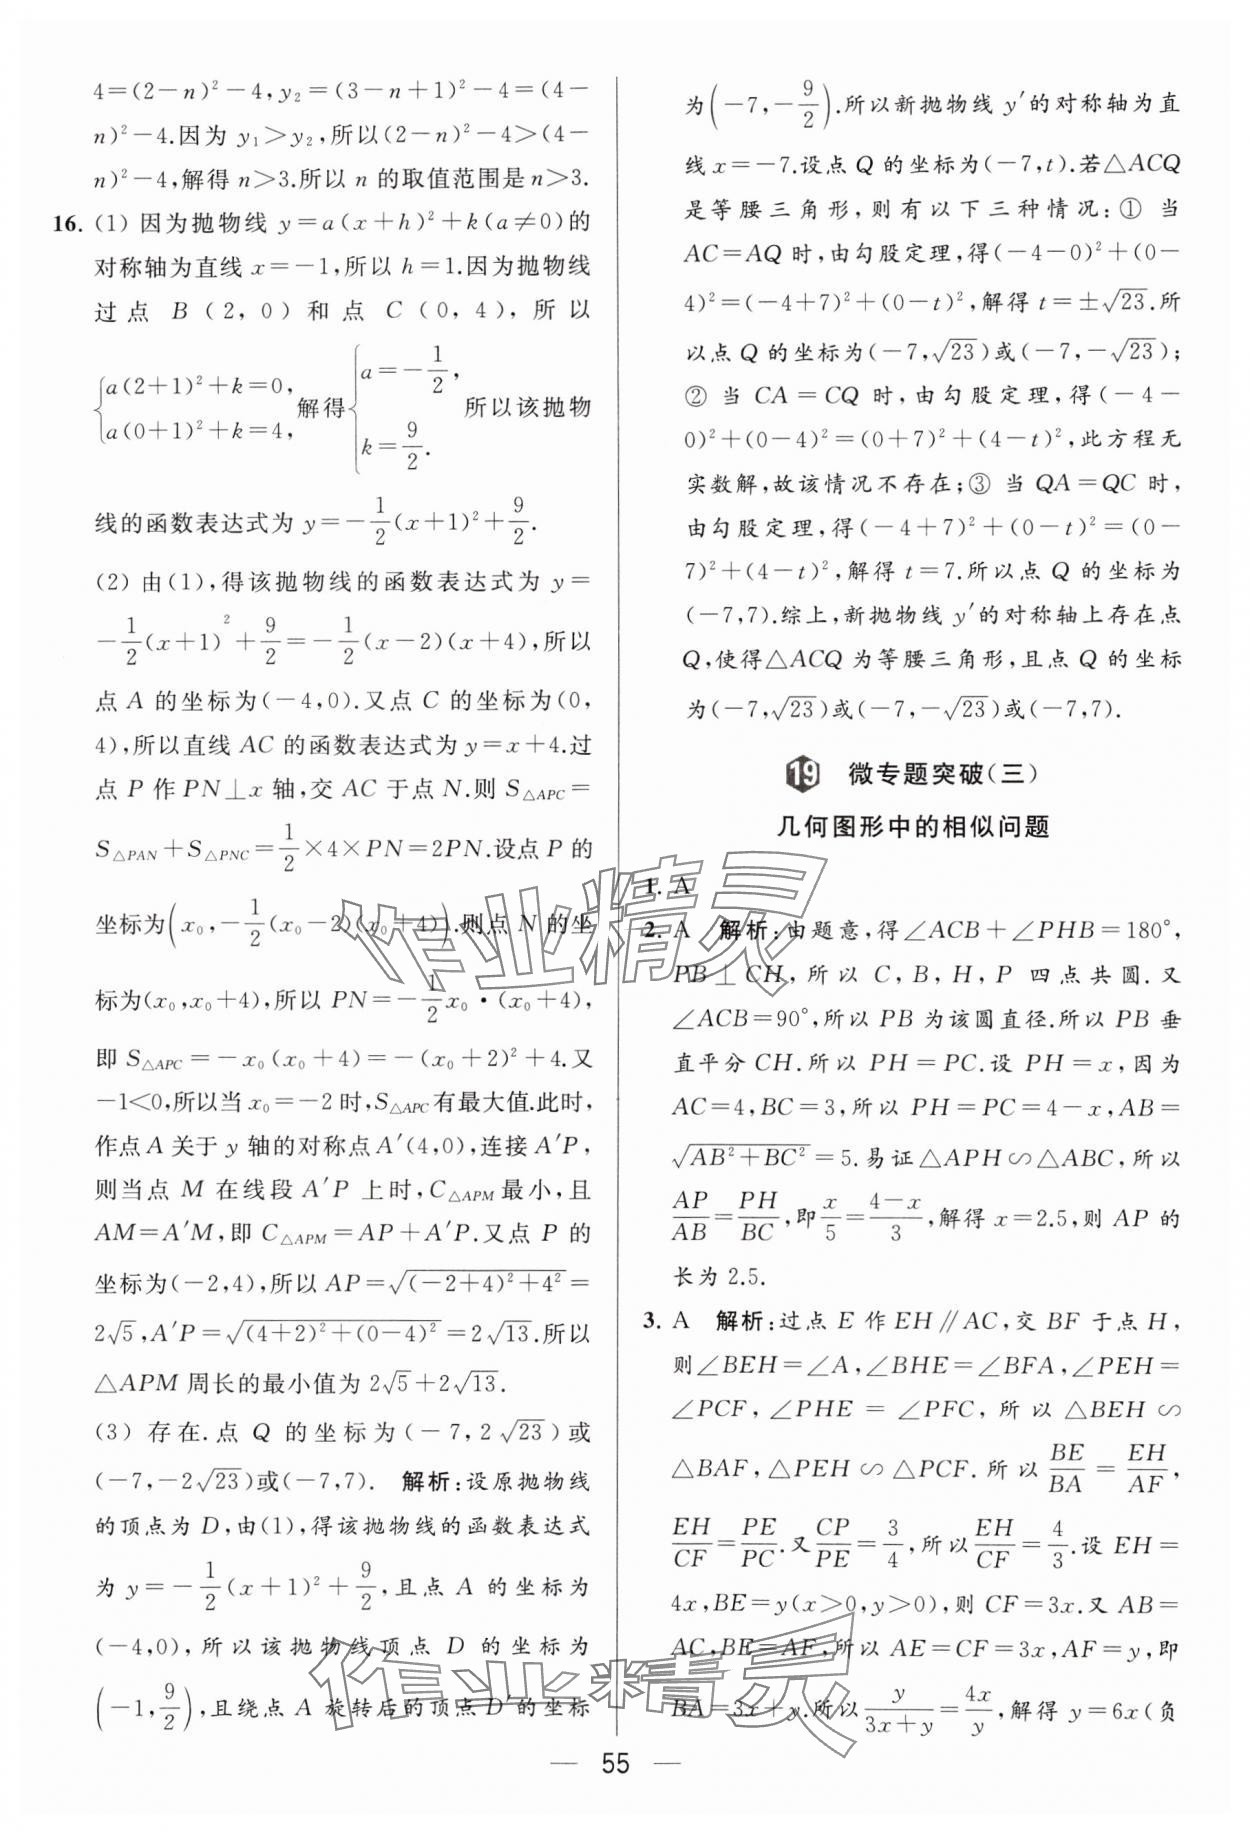 4=(2-n)²-4,y₂=(3-n+1)²-4=(4-
n)²-4.因为 y₁>y₂,所以(2-n)²-4>(4-
n)²-4,解得 n>3.所以 n 的取值范围是 n>3.
16. (1) 因为抛物线 y=a(x+h)²+k(a≠0)的
对称轴为直线 x=-1,所以 h=1.因为抛物线
过点 B(2,0)和点 C(0,4),所以
{a(2+1)²+k=0, a(0+1)²+k=4, 解得 {a=-1/2, k=9/2. 所以该抛物
线的函数表达式为 y=-1/2(x+1)²+9/2.
(2) 由(1),得该抛物线的函数表达式为 y=
-1/2(x+1)²+9/2=-1/2(x-2)(x+4),所以
点 A 的坐标为(-4,0).又点 C 的坐标为(0,
4),所以直线 AC 的函数表达式为 y=x+4.过
点 P 作 PN⊥x 轴,交 AC 于点 N.则 S△APC=
S△PAN+S△PNC=1/2×4×PN=2PN.设点 P 的
坐标为(x₀,-1/2(x₀-2)(x₀+4)).则点 N 的坐
标为(x₀,x₀+4),所以 PN=-1/2x₀·(x₀+4),
即 S△APC=-x₀(x₀+4)=-(x₀+2)²+4.又
-1<0,所以当 x₀=-2 时,S△APC有最大值.此时,
作点 A 关于 y 轴的对称点 A′(4,0),连接 A′P,
则当点 M 在线段 A′P 上时,C△APM最小,且
AM=A′M,即 C△APM=AP+A′P.又点 P 的
坐标为(-2,4),所以 AP=√((-2+4)²+4²)=
2√5,A′P=√((4+2)²+(0-4)²)=2√13.所以
△APM 周长的最小值为 2√5+2√13.
(3) 存在.点 Q 的坐标为(-7,2√23)或
(-7,-2√23)或(-7,7). 解析:设原抛物线
的顶点为 D,由(1),得该抛物线的函数表达式
为 y=-1/2(x+1)²+9/2,且点 A 的坐标为
(-4,0),所以该抛物线顶点 D 的坐标为
(-1,9/2),且绕点 A 旋转后的顶点 D′的坐标
为(-7,-9/2).所以新抛物线 y′的对称轴为直
线 x=-7.设点 Q 的坐标为(-7,t).若△ACQ
是等腰三角形,则有以下三种情况:① 当
AC=AQ 时,由勾股定理,得(-4-0)²+(0-
4)²=(-4+7)²+(0-t)²,解得 t=±√23.所
以点 Q 的坐标为(-7,√23)或(-7,-√23);
② 当 CA=CQ 时,由勾股定理,得(-4-
0)²+(0-4)²=(0+7)²+(4-t)²,此方程无
实数解,故该情况不存在;③ 当 QA=QC 时,
由勾股定理,得(-4+7)²+(0-t)²=(0-
7)²+(4-t)²,解得 t=7.所以点 Q 的坐标为
(-7,7).综上,新抛物线 y′的对称轴上存在点
Q,使得△ACQ 为等腰三角形,且点 Q 的坐标
为(-7,√23)或(-7,-√23)或(-7,7).
19 微专题突破(三)
几何图形中的相似问题
1. A
2. A 解析:由题意,得∠ACB+∠PHB=180°,
PB⊥CH,所以 C,B,H,P 四点共圆.又
∠ACB=90°,所以 PB 为该圆直径.所以 PB 垂
直平分 CH.所以 PH=PC.设 PH=x,因为
AC=4,BC=3,所以 PH=PC=4-x,AB=
√(AB²+BC²)=5.易证△APH∽△ABC,所以
AP/AB=PH/BC,即x/5=(4-x)/3,解得 x=2.5,则 AP 的
长为 2.5.
3. A 解析:过点 E 作 EH∥AC,交 BF 于点 H,
则∠BEH=∠A,∠BHE=∠BFA,∠PEH=
∠PCF,∠PHE=∠PFC,所以△BEH∽
△BAF,△PEH∽△PCF.所以BE/BA=EH/AF,
EH/CF=PE/PC.又CP/PE=3/4,所以EH/CF=4/3.设 EH=
4x,BE=y(x>0,y>0),则 CF=3x.又 AB=
AC,BE=AF,所以 AE=CF=3x,AF=y,即
BA=3x+y.所以y/(3x+y)=4x/y,解得 y=6x(负
作业精灵
作业精灵
55